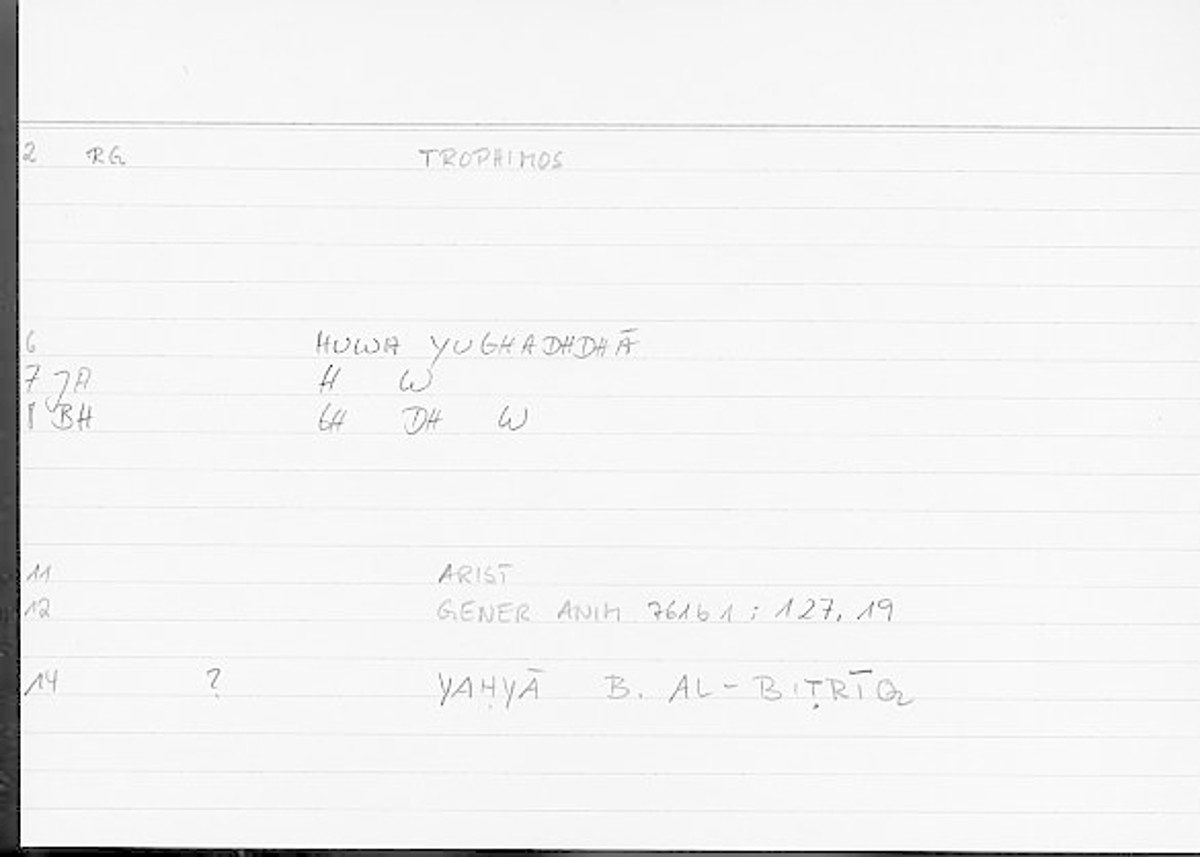 2 RG TROPHIMOS
6 HUWA YUGHADHDHĀ
7 JA H W
8 BH GH DH W
11 ARIST
12 GENER ANIM 761b1 ; 127, 19
14 ? YAḤYĀ B. AL-BIṬRĪQ